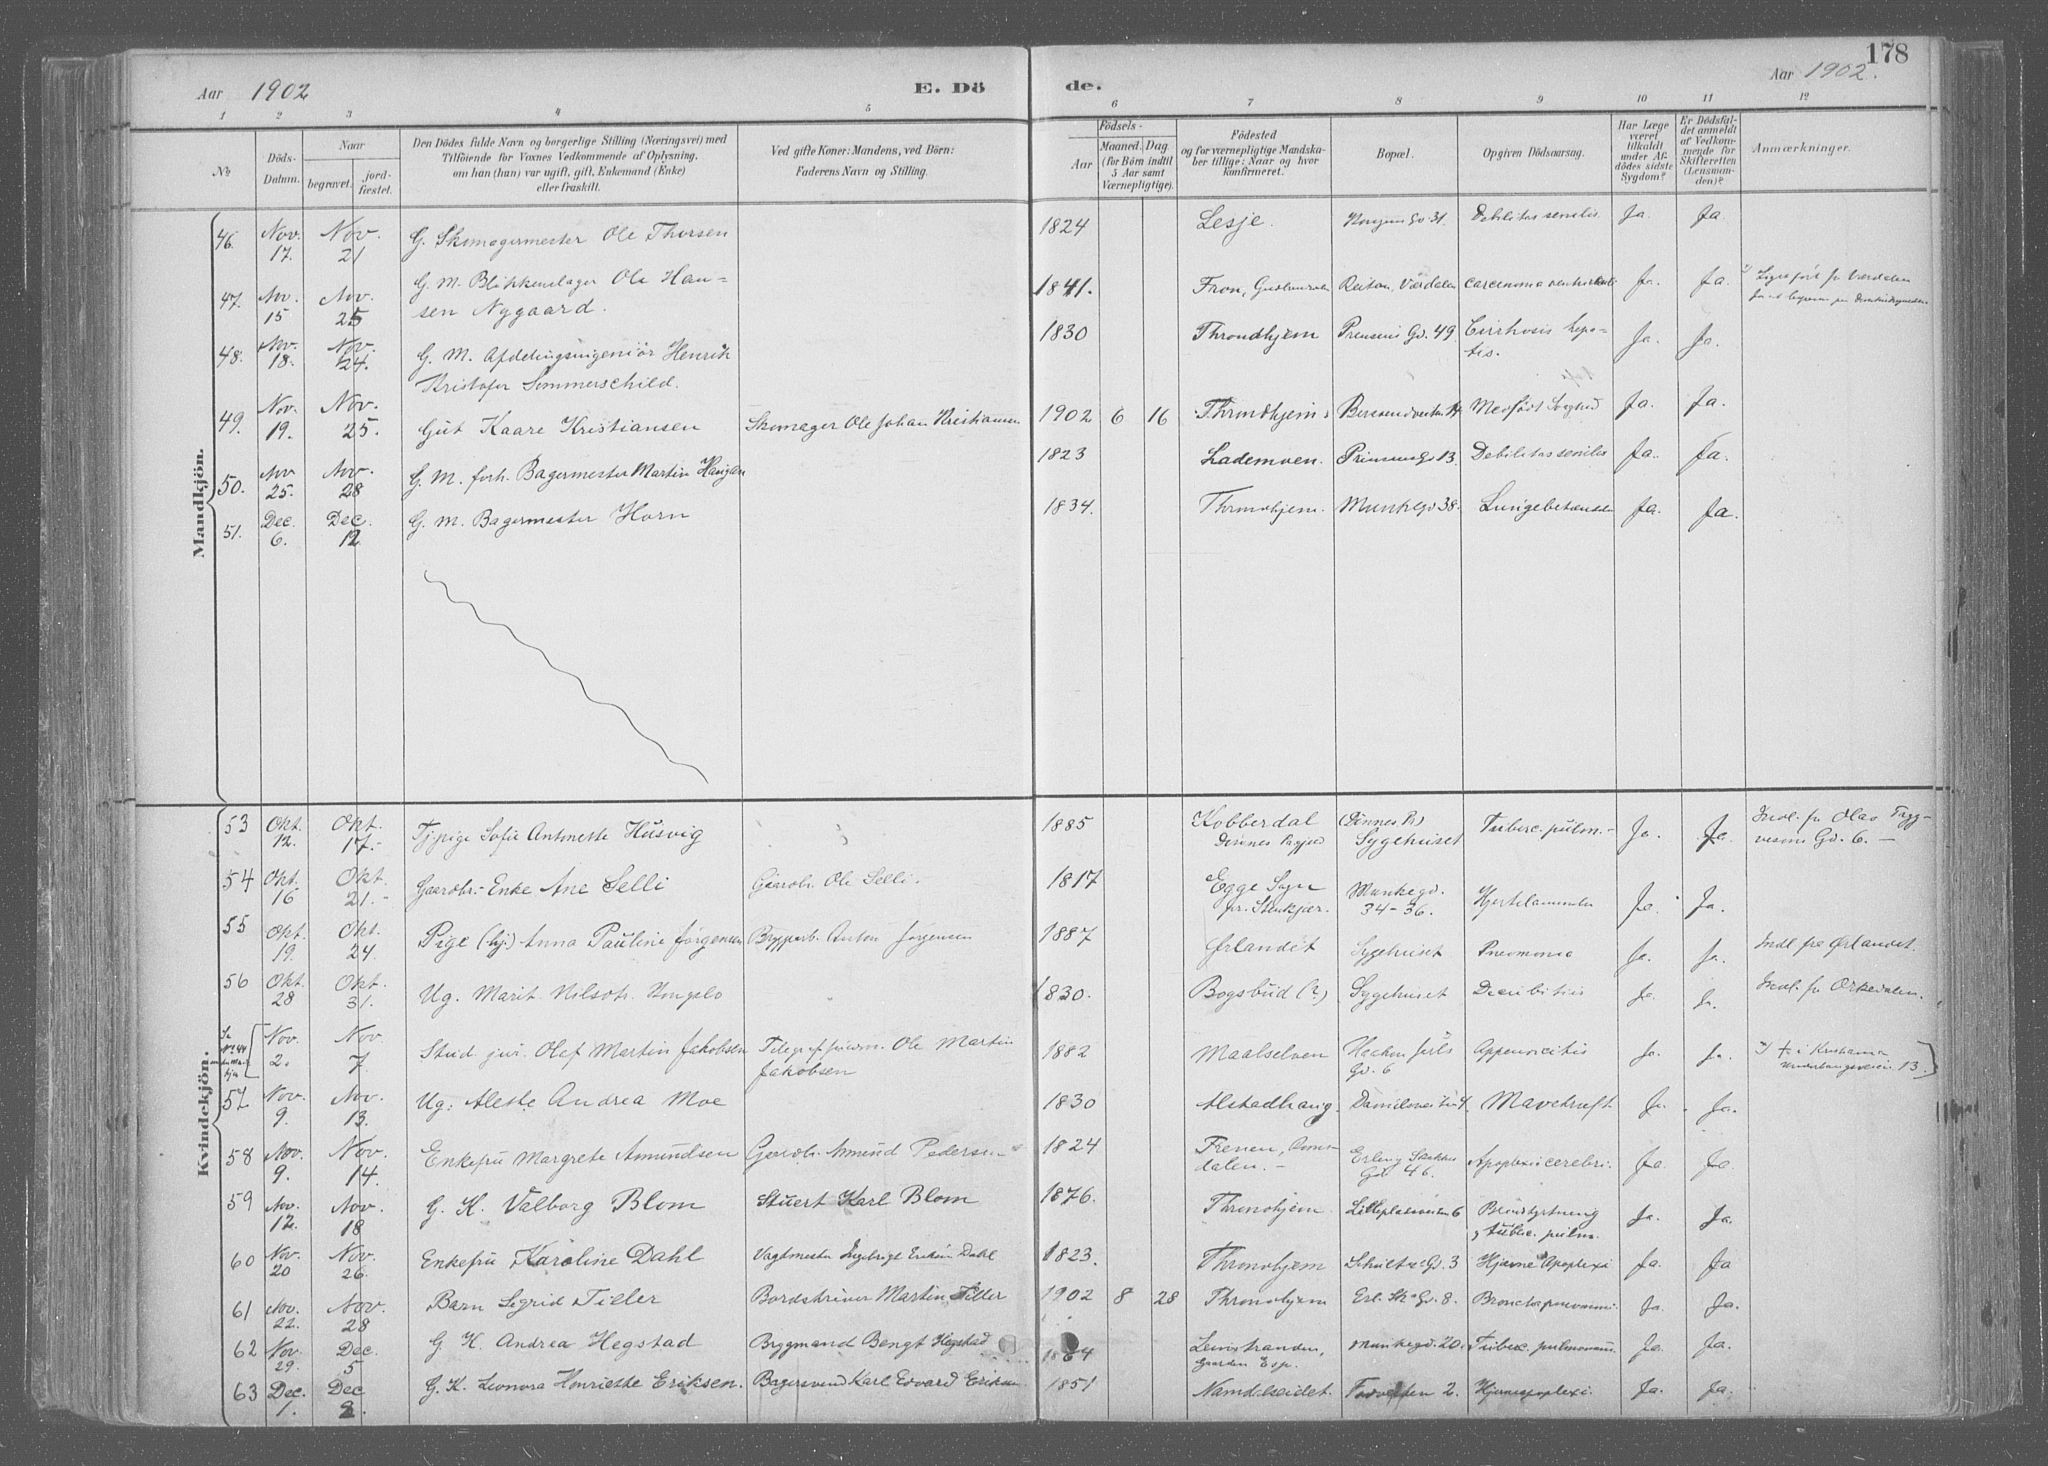 178
Aar 1902
E. Dö
de.
Aar 1902.
1 2 3 4 5 6 7 8 9 10 11 12
No
Döds-Datum.
Naar
begravet.
jord-fæstet.
Den Dödes fulde Navn og borgerlige Stilling (Næringsvei) med
Tilföiende for Voxnes Vedkommende af Oplysning,
om han (hun) var ugift, gift, Enkemand (Enke)
eller fraskilt.
Ved gifte Koner: Mandens, ved Börn:
Faderens Navn og Stilling.
Födsels-
Aar
Maaned. Dag
(for Börn indtil
5 Aar samt
Værnepligtige).
Födested
og for værnepligtige Mandska-
ber tillige: Naar og hvor
konfirmeret.
Bopæl.
Opgiven Dödsaarsag.
Har Læge
været
tilkaldt
under Af-
dödes sidste
Sygdom?
Er Dödsfal-
det anmeldt
af Vedkom-
mende for
Skifteretten
(Lensman-
den)?
Anmærkninger.
Mandkjön.
46. Nov. 17. Nov. 21 G. Skomagermester Ole Thorsen 1824 Lesje. Gd. 31. Debilitas senilis Ja. Ja.
47. Nov. 15 Nov. 25 G. M. Blikkenslager Ole Han-
sen Nygaard. 1841. Fron, Reitan, Værdalen carcinoma Ja. Ja. fr Værdalen
48. Nov. 18. Nov. 24. G. M. Afdelingsingeniör Henrik
Kristofer Sommerschild. 1830 Throndhjem Prinsens Gd. 49 Cirrhosis hepa-
tis. Ja. Ja.
49. Nov. 19. Nov. 25. Gut Kaare Kristiansen Skomager Ole Johan Kristiansen 1902 6 16 Throndhjem Medfödt Svaghed Ja. Ja.
50. Nov 25. Nov. 28 G. M. forh. Bagermester Martin Haugan 1823 Lademoen. Prinsens Gd 13. Debilitas senilis Ja. Ja.
51. Dec. 6. Dec. 12 G. M. Bagermester Horn 1834. Throndhjem. Munkegd 38. Lungebetændelse Ja. Ja.
Kvindekjön.
53 Okt. 12. Okt. 17.- Tjpige Sofie Antonette Husvig 1885 Kobberdal
Dönnes (Dönnes P)
Sygehuset Tuberc. pulm.- Ja. Ja. Indl. fr Olav Tryg-
vesons Gd. 6. -
54 Okt. 16 Okt. 21.- Gaardbr.- Enke Ane Selli Gaardbr. Ole Selli. 1817 Egge Sogn
pr. Stenkjær. Munkegd.
34-36. Hjertelammelse Ja. Ja.
55 Okt. 19. Okt. 24 Pige (hj.) Anna Pauline Jørgensen Anton Jørgensen 1887 Ørlandet Sygehuset Pneumonia Ja. Ja. Indl. fra Ørlandet.
56 Okt. 28 Okt. 31. Ug. Marit Nilsdtr. 1830. Bogsbud (?) Sygehuset Decubitus Ja. Ja. Indl. fr Orkedalen.
Nov. 2. Nov 7. Stud. jur. Olaf Martin Jakobsen Ole Martin
Jakobsen 1882 Maalselven Haakon Jarls
Gd. 6 Appendicitis Ja. Ja. + i Kristiania
13.
57 Nov. 9. Nov. 13. Ug. Aleste Andrea Moe 1830 Alstadhaug. Mavekræft. Ja. Ja.
58 Nov. 9. Nov. 14. Enkefru Margrete Amundsen Gaardbr. Amund Pedersen 1824 Frenen, Roms-
dalen.- Erling Skakkes
Gd 46. Apoplexi cerebri. Ja. Ja.
59 Nov. 12. Nov. 18 G. K. Valborg Blom Stuert Karl Blom 1876. Throndhjem. 6 Ja. Ja.
60 Nov. 20 Nov. 26. Enkefru Karoline Dahl Vagtmester Ingebrigt Eriksen Dahl 1823. Throndhjem Gd. 3 Hjerne Apoplexi Ja. Ja
61 Nov. 22. Nov. 28 Barn Sigrid Tiller Bordskriver Martin Tiller 1902 8 28 Throndhjem Erl. Sk. Gd. 8. Ja. Ja.
62 Nov. 29. Dec. 5 G. K. Andrea Hegstad Bryggmand Bengt Hegstad 1864 Leinstranden,
Gaarden Esp. Munkegd. 20. Tuberc. pulmonum Ja. Ja.
63 Dec. 1. Dec 8. G. K. Leonora Henriette Eriksen. Bagersvend Karl Edvard Eriksen 1851 Namdalseidet. 2. Hjerneapoplexi. Ja. Ja.